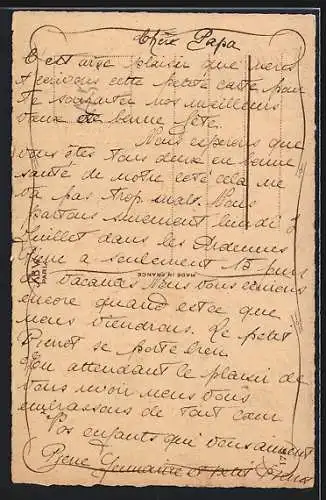 Chère Papa
C'est avec plaisir que nous
t'ecrivons cette petite carte pour
te souhaiter nos meilleurs
vœux de bonne fête.
Nous esperons que
vous êtes tous deux en bonne
santé de notre coté cela ne
va pas trop mal. Nous
partons surement lundi 3
Juillet dans les Ardennes
a seulement 15 jours
de vacances Nous vous ecrirons
encore quand est ce que
nous viendrons. Le petit
Pierrot se porte bien
En attendant le plaisir de
vous revoir nous vous
embrassons de tout cœur
Vos enfants qui vous aiment
Germaine et petit Pierrot
MADE IN FRANCE
PARIS